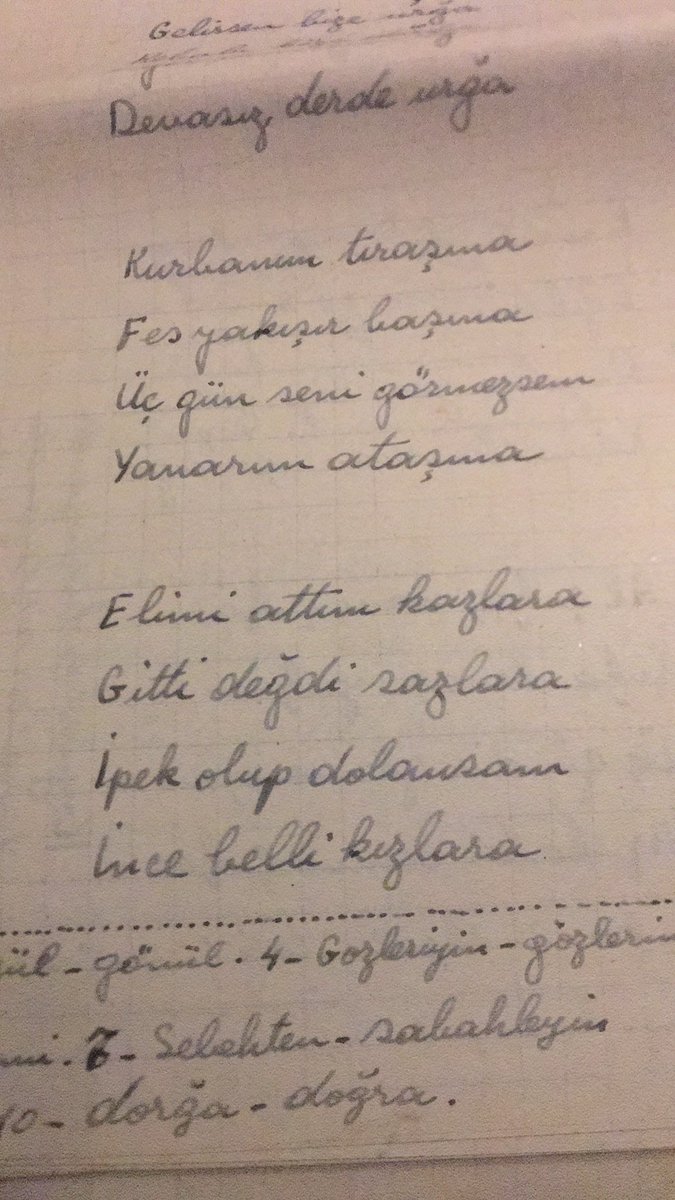 Gelirsen bize urğa
Devasız derde urğa
Kurbanım tıraşına
Fes yakışır başına
Üç gün seni görmezsem
Yanarım ataşına
Elimi attım kazlara
Gitti değdi sazlara
İpek olup dolansam
İnce belli kızlara
ül - gönül. 4- Gozleriyin - gözlerin
mi. 7- Sebehten - sabahleyin
10 - dorğa - doğra.